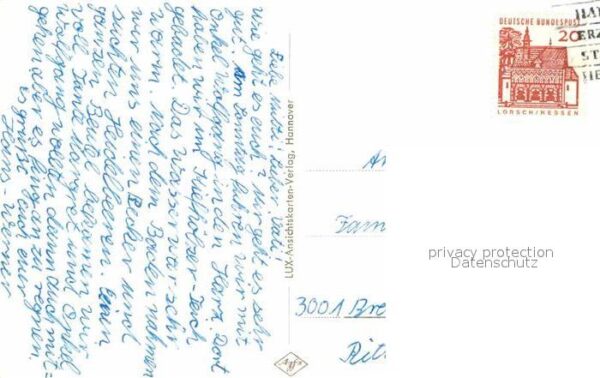 Liebe Mutti, lieber Vati!
wie geht es euch? mir geht es sehr
gut. Am Sonntag fuhren wir mit
Onkel Wolfgang in den Harz. Dort
haben wir im
gebadet. Das Wasser war schön
warm. Nach dem Baden nahmen
wir uns einen Becher und
suchten Heidelbeeren. Einen
ganzen Becher bekamen wir
voll. Tante und Onkel
Wolfgang wollten dann auch mit=
gehen aber es fing an zu regnen.
Es grüßt euch euer
Hans-Werner
LUX-Ansichtskarten-Verlag, Hannover
DEUTSCHE BUNDESPOST
20
LORSCH/HESSEN
HA
ERZ
ST
An
Fam
3001 Bre
Rit
privacy protection
Datenschutz